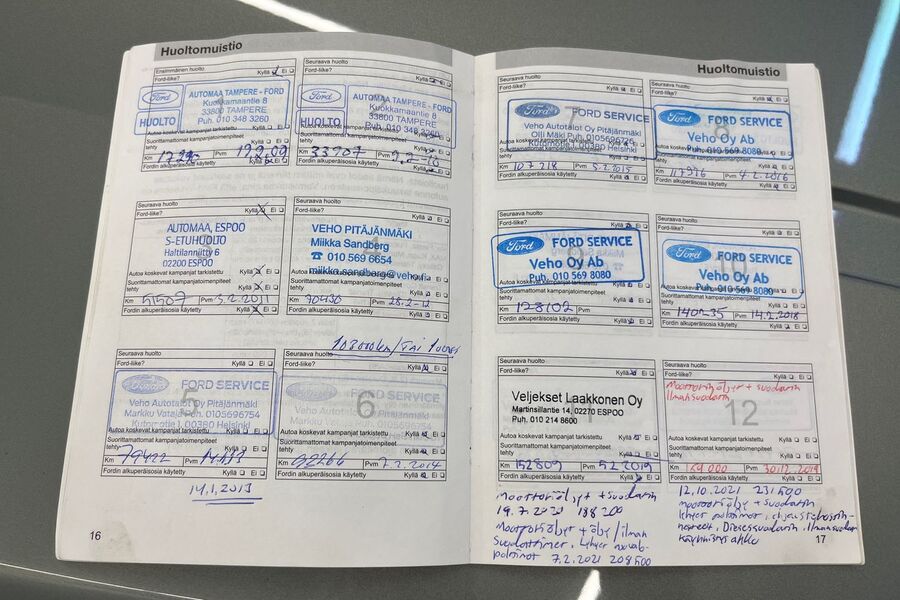 Huoltomuistio
Ensimmäinen huolto Kyllä Ei
Ford-liike?
Ford
HUOLTO
AUTOMAA TAMPERE - FORD
Kuokkamaantie 8
33800 TAMPERE
Puh. 010 348 3260
Autoa koskevat kampanjat tarkistettu Kyllä Ei
Suorittamattomat kampanjatoimenpiteet
tehty Kyllä Ei
Km Pvm
Fordin alkuperäisosia käytetty Kyllä Ei
Seuraava huolto Kyllä Ei
Ford-liike?
Ford
HUOLTO
AUTOMAA TAMPERE - FORD
Kuokkamaantie 8
33800 TAMPERE
Puh. 010 348 3260
Autoa koskevat kampanjat tarkistettu Kyllä Ei
Suorittamattomat kampanjatoimenpiteet
tehty
Km 33707 Pvm
Fordin alkuperäisosia käytetty
Seuraava huolto
Ford-liike? Kyllä Ei
AUTOMAA, ESPOO
S-ETUHUOLTO
Haltilanniitty 6
02200 ESPOO
Autoa koskevat kampanjat tarkistettu Kyllä Ei
Suorittamattomat kampanjatoimenpiteet
tehty Kyllä Ei
Km 51507 Pvm 3.2.2011
Fordin alkuperäisosia käytetty Kyllä Ei
Seuraava huolto
Ford-liike? Kyllä Ei
VEHO PITÄJÄNMÄKI
Miikka Sandberg
☎ 010 569 6654
miikka.sandberg@veho.fi
Autoa koskevat kampanjat tarkistettu Kyllä Ei
Suorittamattomat kampanjatoimenpiteet
tehty Kyllä Ei
Km 70430 Pvm 28.2-12
Fordin alkuperäisosia käytetty Kyllä Ei
Seuraava huolto
Ford-liike? Kyllä Ei
5
Ford
FORD SERVICE
Veho Autotalot Oy Pitäjänmäki
Kutomotie 1, 00380 Helsinki
Autoa koskevat kampanjat tarkistettu Kyllä Ei
Suorittamattomat kampanjatoimenpiteet
tehty Kyllä Ei
Km 79422 Pvm
Fordin alkuperäisosia käytetty Kyllä Ei
14.1.2013
Seuraava huolto
Ford-liike? Kyllä Ei
6
FORD SERVICE
Veho Autotalot Oy Pitäjänmäki
Markku Vataja Puh. 0105696754
Kutomotie 1, 00380 Helsinki
Autoa koskevat kampanjat tarkistettu Kyllä Ei
Suorittamattomat kampanjatoimenpiteet
tehty Kyllä Ei
Km Pvm 7.2.2014
Fordin alkuperäisosia käytetty Kyllä Ei
16
Huoltomuistio
Seuraava huolto
Ford-liike? Kyllä Ei
7
Ford
FORD SERVICE
Veho Autotalot Oy Pitäjänmäki
Kutomotie 1, 00380 Helsinki
Suorittamattomat kampanjatoimenpiteet
tehty Kyllä Ei
Km 107218 Pvm 5.2.2015
Fordin alkuperäisosia käytetty Kyllä Ei
Seuraava huolto
Ford-liike? Kyllä Ei
8
Ford
FORD SERVICE
Veho Oy Ab
Puh. 010 569 8080
Suorittamattomat kampanjatoimenpiteet
tehty Kyllä Ei
Km Pvm 4.2.2016
Fordin alkuperäisosia käytetty Kyllä Ei
Seuraava huolto
Ford-liike? Kyllä Ei
Ford
FORD SERVICE
Veho Oy Ab
Puh. 010 569 8080
Suorittamattomat kampanjatoimenpiteet
tehty Kyllä Ei
Km 128102 Pvm
Fordin alkuperäisosia käytetty Kyllä Ei
Seuraava huolto
Ford-liike? Kyllä Ei
10
Ford
FORD SERVICE
Veho Oy Ab
Puh. 010 569 8080
Suorittamattomat kampanjatoimenpiteet
tehty Kyllä Ei
Km Pvm 14.2.2018
Fordin alkuperäisosia käytetty Kyllä Ei
Seuraava huolto
Ford-liike? Kyllä Ei
Veljekset Laakkonen Oy
Martinsillantie 14, 02270 ESPOO
Puh. 010 214 8600
Autoa koskevat kampanjat tarkistettu Kyllä Ei
Suorittamattomat kampanjatoimenpiteet
tehty Kyllä Ei
Km 152809 Pvm 5.2.2019
Fordin alkuperäisosia käytetty Kyllä Ei
Moottoriöljyt + suodatin
19.7.2020 188 200
Moottoriöljyt + öljy / ilman
7.2.2021 208500
Seuraava huolto
Ford-liike? Kyllä Ei
Moottoriöljyt + suodatin
Ilmansuodatin
12
Autoa koskevat kampanjat tarkistettu Kyllä Ei
Suorittamattomat kampanjatoimenpiteet
tehty Kyllä Ei
Km 169 000 Pvm 30.12.2019
Fordin alkuperäisosia käytetty Kyllä Ei
12.10.2021 231 500
moottoriöljy + suodatin
17